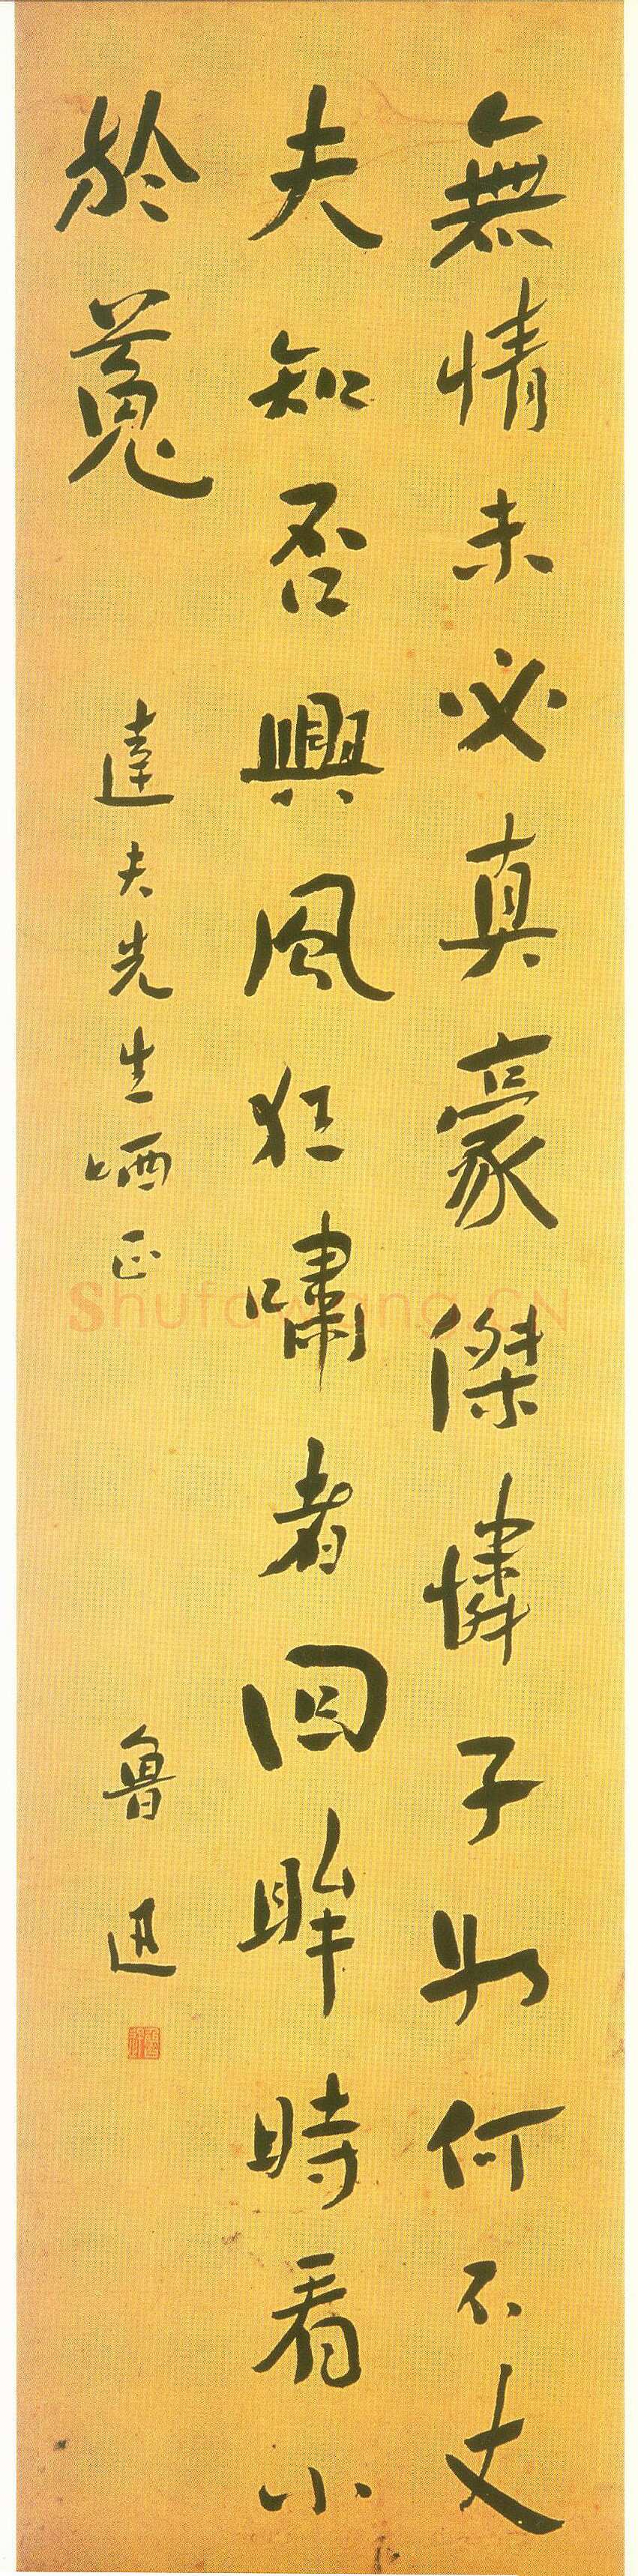 無情未必真豪傑憐子如何不丈
夫知否興風狂嘯者回眸時看小
於菟
達夫先生哂正
魯迅
Shufawang.CN